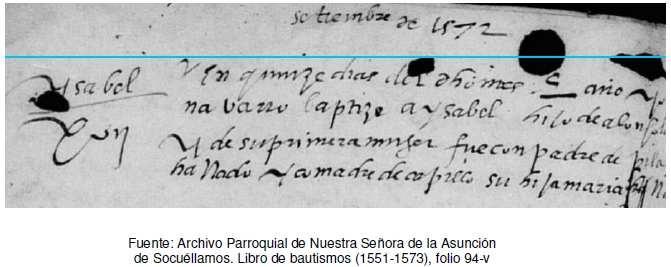 setiembre de 1572
Ysabel
XVII
En quinze dias del dho mes año
navarro baptizo a ysabel hija de alonso
y de su primera muger fue conpadre de pila
ha llado y comadre de su hija maria
Fuente: Archivo Parroquial de Nuestra Señora de la Asunción
de Socuéllamos. Libro de bautismos (1551-1573), folio 94-v